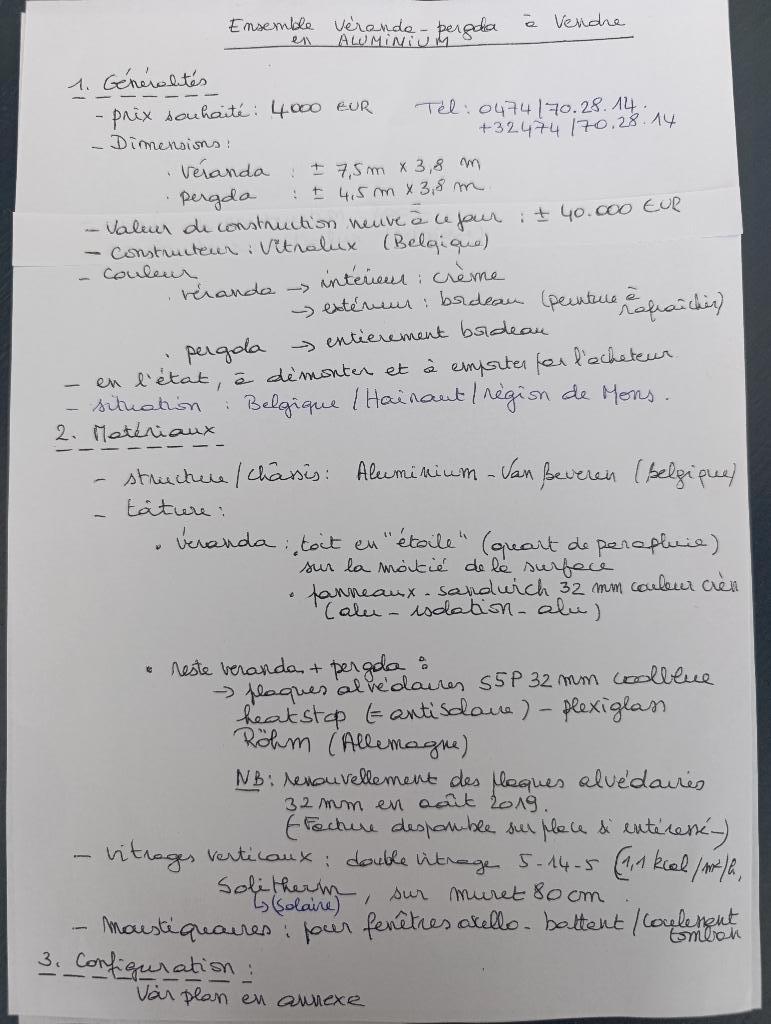 Ensemble Véranda-pergola à Vendre
en ALUMINIUM
1. Généralités
- prix souhaité : 4.000 EUR Tél : 0474/70.28.14.
+32474/70.28.14
- Dimensions :
. véranda : ± 7,5m x 3,8 m
. pergola : ± 4,5m x 3,8 m.
- Valeur de construction neuve à ce jour : ± 40.000 EUR
- Constructeur : Vitralux (Belgique)
- Couleur
. véranda → intérieur : crème
→ extérieur : bordeau (peinture à rafraîchir)
. pergola → entièrement bordeau
- en l'état, à démonter et à emporter par l'acheteur
- situation : Belgique / Hainaut / région de Mons.
2. Matériaux
- structure / châssis : Aluminium - Van Beveren (Belgique)
- tâture :
• Véranda : . toit en "étoile" (quart de parapluie)
sur la moitié de la surface
• panneaux - sandwich 32 mm couleur crèm
(alu - isolation - alu)
• reste veranda + pergola :
→ plaques alvéolaires S5P 32 mm coolblue
heatstop (= antisolaire) - plexiglass
Röhm (Allemagne)
NB : renouvellement des plaques alvéolaires
32 mm en août 2019.
(- Facture disponible sur place si intéressé -)
- Vitrages verticaux : double vitrage 5-14-5 (1,1 kcal/m²/h,
Solitherm, sur muret 80 cm.
↳ (solaire)
- Moustiquaires : pour fenêtres oscillo-battent / coulement
tomban
3. Configuration :
Voir plan en annexe